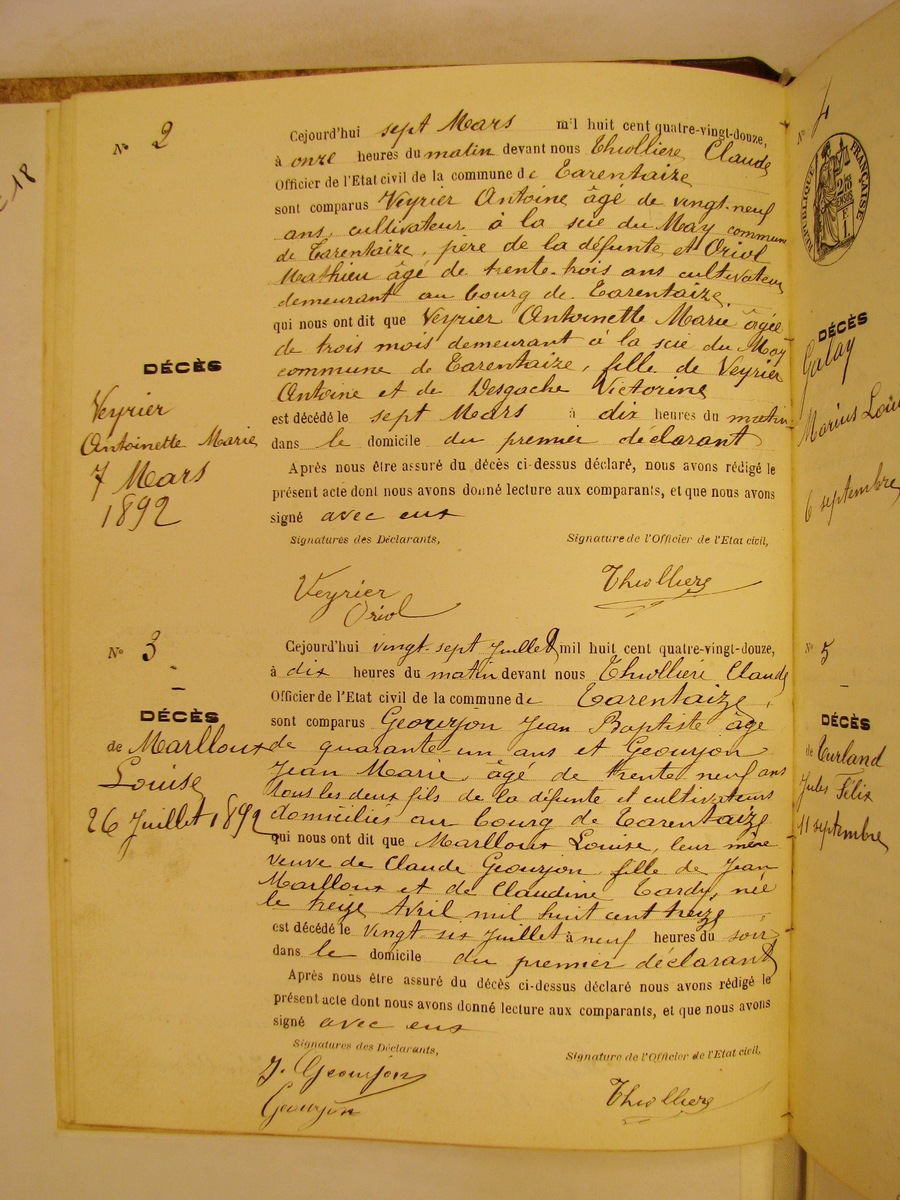 18
N° 2
Cejourd'hui sept Mars mil huit cent quatre-vingt-douze,
à onze heures du matin devant nous Thiollière Claude
Officier de l'Etat civil de la commune de Tarentaize
sont comparus Veyrier Antoine âgé de vingt-neuf
ans, cultivateur à la scie du May commune
de Tarentaize, père de la défunte et Oriol
Mathieu âgé de trente-trois ans cultivateur
demeurant au bourg de Tarentaize.
qui nous ont dit que Veyrier Antoinette Marie âgée
de trois mois demeurant à la scie du May
commune de Tarentaize, fille de Veyrier
Antoine et de Desgache Victorine
est décédé le sept Mars à dix heures du matin
dans le domicile du premier déclarant
Après nous être assuré du décès ci-dessus déclaré, nous avons rédigé le
présent acte dont nous avons donné lecture aux comparants, et que nous avons
signé avec eux
Signatures des Déclarants,
Signature de l'Officier de l'Etat civil,
Veyrier
Oriol
Thiolliere
DÉCÈS
Veyrier
Antoinette Marie
7 Mars
1892
N° 3
Cejourd'hui vingt-sept Juillet mil huit cent quatre-vingt-douze,
à dix heures du matin devant nous Thiollière Claude
Officier de l'Etat civil de la commune de Tarentaize,
sont comparus Geourjon Jean Baptiste âgé
de quarante-un ans et Geourjon
Jean Marie, âgé de trente neuf ans
tous les deux fils de la défunte et cultivateurs
domiciliés au bourg de Tarentaize
qui nous ont dit que Marlloux Louise, leur mère
veuve de Claude Geourjon, fille de Jean
Marlloux et de Claudine Tardy, née
le treize Avril mil huit cent treize
est décédé le vingt-six Juillet à neuf heures du soir
dans le domicile du premier déclarant
Après nous être assuré du décès ci-dessus déclaré nous avons rédigé le
présent acte dont nous avons donné lecture aux comparants, et que nous avons
signé avec eux
Signatures des Déclarants,
Signature de l'Officier de l'Etat civil,
J. Geourjon
Geourjon
Thiolliere
DÉCÈS
de Marlloux
Louise
26 Juillet 1892
N° 4
RÉPUBLIQUE FRANÇAISE
DÉCÈS
Galay
Marius Loui
6 septembre
N° 5
DÉCÈS
de Turland
Jules Félix
11 septembre